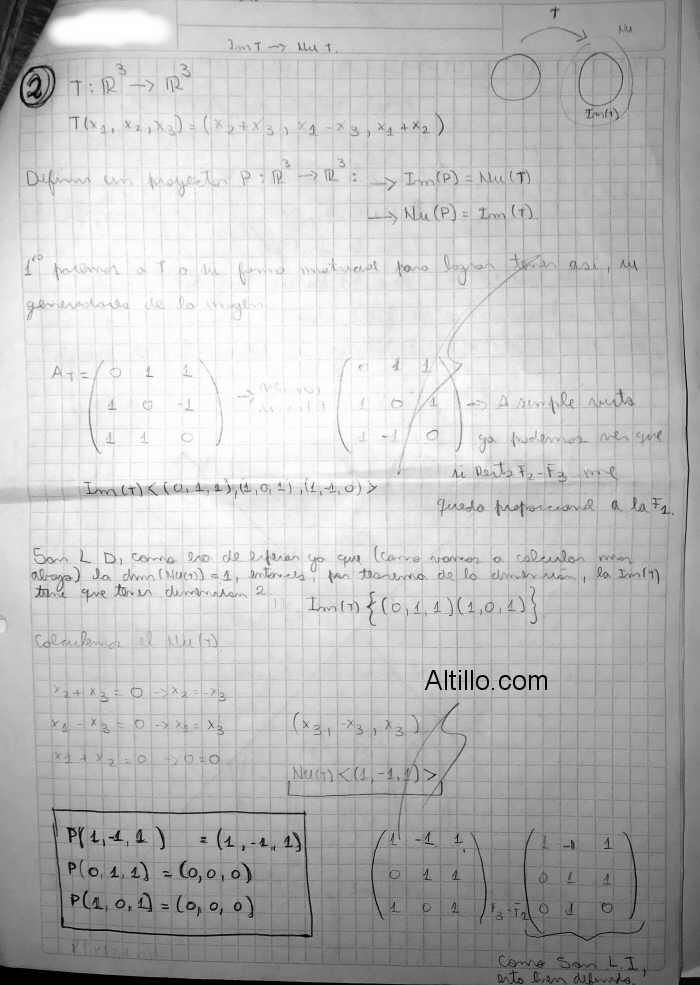 T
Nu
Im T → Nu T.
Im(T)
2
T : ℝ³ → ℝ³
T(x₁, x₂, x₃) = (x₂+x₃, x₁-x₃, x₁+x₂)
Definir un proyector P : ℝ³ → ℝ³ : → Im(P) = Nu(T)
→ Nu(P) = Im(T)
1ro pasemos a T a su forma matricial para lograr tener así, su
generadores de la imagen.
A_T = ( 0 1 1 ) → ( 0 1 1 )
( 1 0 -1 ) ( 1 0 1 ) → A simple vista
( 1 1 0 ) ( 1 -1 0 ) ya podemos ver que
si resto F₂-F₃ me
queda proporcional a la F₁.
Im(T) < (0,1,1),(1,0,1),(1,-1,0) >
Son L D, como era de esperar ya que (como vamos a calcular mas
abajo) la dim(Nu(T))=1, entonces, por teorema de la dimensión, la Im(T)
tiene que tener dimension 2.
Im(T) {(0,1,1)(1,0,1)}
Calculemos el Nu(T)
Altillo.com
x₂ + x₃ = 0 → x₂ = -x₃
x₁ - x₃ = 0 → x₁ = x₃ (x₃, -x₃, x₃)
x₁ + x₂ = 0 → 0=0
Nu(T) < (1,-1,1) >
P(1,-1,1) = (1,-1,1)
P(0,1,1) = (0,0,0)
P(1,0,1) = (0,0,0)
( 1 -1 1 ) ( 1 -1 1 )
( 0 1 1 ) ( 0 1 1 )
( 1 0 1 ) F₃-F₂ ( 0 1 0 )
Como Son L.I,
esta bien definida.